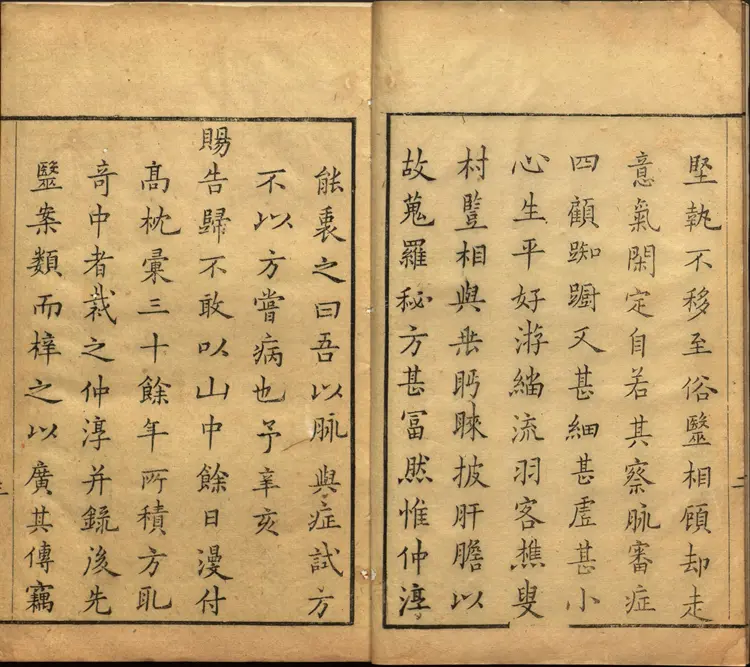 堅執不移至俗毉相顧却走
意氣閑定自若其察脉審症
四顧踟躕又甚細甚虚甚小
心生平好游緇流羽客樵叟
村豎相與垂盻睞披肝膽以
故蒐羅秘方甚富然惟仲淳
能衷之曰吾以脉與症試方
不以方嘗病也予辛亥
賜告歸不敢以山中餘日漫付
髙枕彙三十餘年所積方取
竒中者裁之仲淳并錄後先
毉案類而梓之以廣其傳竊
二
三